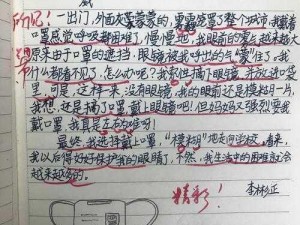 感
可怕！一出门，外面灰蒙蒙的，雾霾笼罩了整个城市，我戴着
口罩感觉呼吸都困难了，慢慢地，我眼前的"雾"越来越大
原来由于口罩的遮挡，眼镜被我呼出的气"蒙"住了。我
什么都看不见了，怎么办呢？我索性摘下眼镜，并放进口袋
里，可是，这样一来，没有眼镜，我的眼前还是模糊一片，
我想，还是摘了口罩，戴上眼镜吧！但妈妈又强烈要我
戴口罩，我真是左右为难呀！
最终，我选择戴上口罩，"模糊"地走向学校。看来，
我以后得好好保护我的眼睛了，不然，我生活中的困难就会
越来越多的。
精彩！
李彬正